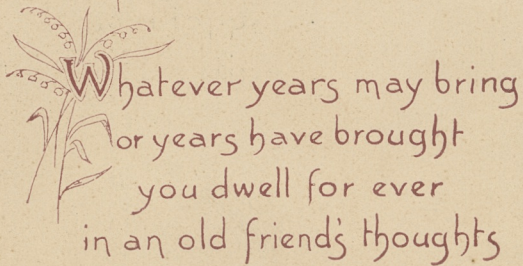 Whatever years may bring
or years have brought
you dwell for ever
in an old friend's thoughts